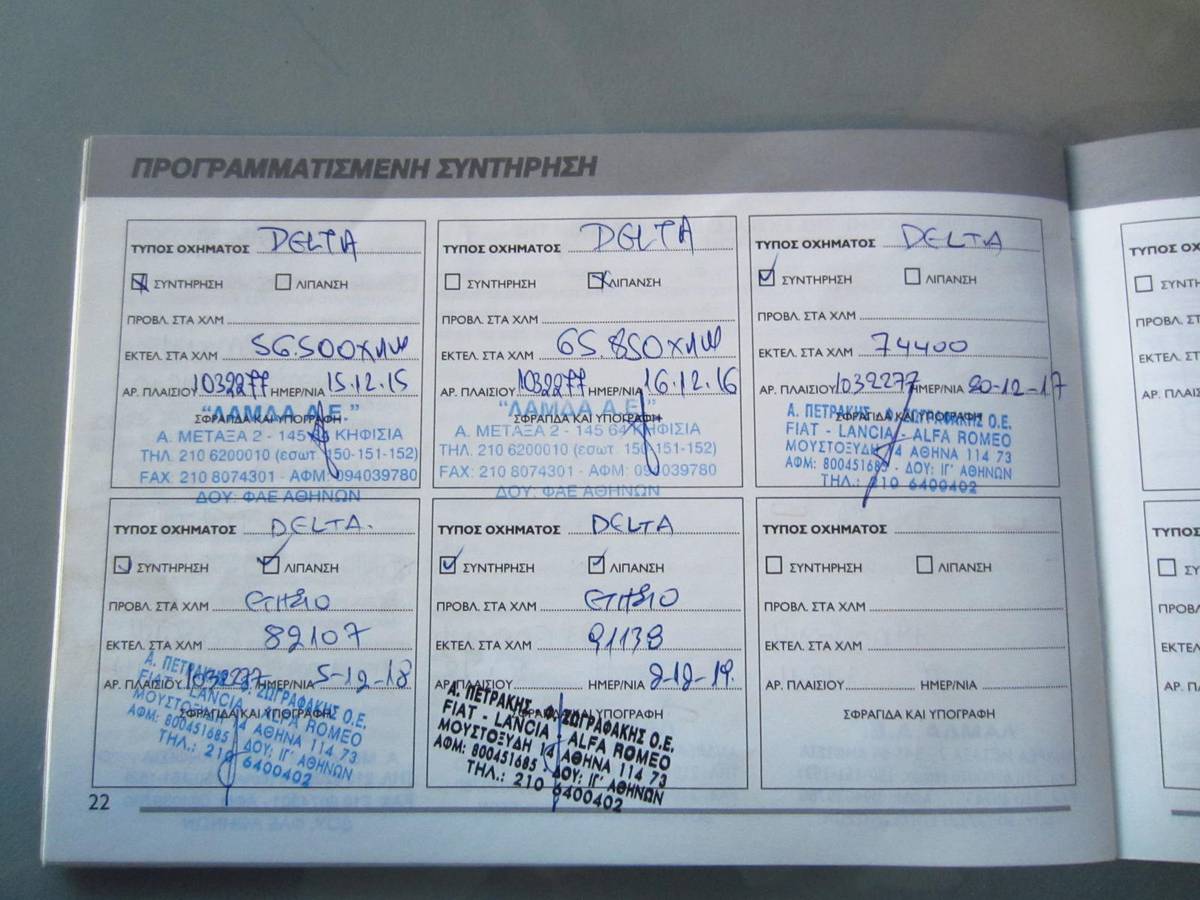 ΠΡΟΓΡΑΜΜΑΤΙΣΜΕΝΗ ΣΥΝΤΗΡΗΣΗ
ΤΥΠΟΣ ΟΧΗΜΑΤΟΣ DELTA
ΣΥΝΤΗΡΗΣΗ ΛΙΠΑΝΣΗ
ΠΡΟΒΛ. ΣΤΑ ΧΛΜ
ΕΚΤΕΛ. ΣΤΑ ΧΛΜ 56.500ΧΛΜ
ΑΡ. ΠΛΑΙΣΙΟΥ 1032277 ΗΜΕΡ/ΝΙΑ 15.12.15
"ΛΑΜΔΑ Α.Ε."
ΣΦΡΑΓΙΔΑ ΚΑΙ ΥΠΟΓΡΑΦΗ
Α. ΜΕΤΑΞΑ 2 - 145 64 ΚΗΦΙΣΙΑ
ΤΗΛ. 210 6200010 (εσωτ. 150-151-152)
FAX: 210 8074301 - ΑΦΜ: 094039780
ΔΟΥ: ΦΑΕ ΑΘΗΝΩΝ
ΤΥΠΟΣ ΟΧΗΜΑΤΟΣ DELTA
ΣΥΝΤΗΡΗΣΗ ΛΙΠΑΝΣΗ
ΠΡΟΒΛ. ΣΤΑ ΧΛΜ
ΕΚΤΕΛ. ΣΤΑ ΧΛΜ 65.850ΧΛΜ
ΑΡ. ΠΛΑΙΣΙΟΥ 1032277 ΗΜΕΡ/ΝΙΑ 16.12.16
"ΛΑΜΔΑ Α.Ε."
ΣΦΡΑΓΙΔΑ ΚΑΙ ΥΠΟΓΡΑΦΗ
Α. ΜΕΤΑΞΑ 2 - 145 64 ΚΗΦΙΣΙΑ
ΤΗΛ. 210 6200010 (εσωτ. 150-151-152)
FAX: 210 8074301 - ΑΦΜ: 094039780
ΔΟΥ: ΦΑΕ ΑΘΗΝΩΝ
ΤΥΠΟΣ ΟΧΗΜΑΤΟΣ DELTA
ΣΥΝΤΗΡΗΣΗ ΛΙΠΑΝΣΗ
ΠΡΟΒΛ. ΣΤΑ ΧΛΜ
ΕΚΤΕΛ. ΣΤΑ ΧΛΜ 74400
ΑΡ. ΠΛΑΙΣΙΟΥ 1032277 ΗΜΕΡ/ΝΙΑ 20-12-17
Α. ΠΕΤΡΑΚΗΣ - Φ. ΖΩΓΡΑΦΑΚΗΣ Ο.Ε.
ΣΦΡΑΓΙΔΑ ΚΑΙ ΥΠΟΓΡΑΦΗ
FIAT - LANCIA - ALFA ROMEO
ΜΟΥΣΤΟΞΥΔΗ 14 ΑΘΗΝΑ 114 73
ΑΦΜ: 800451685 - ΔΟΥ: ΙΓ' ΑΘΗΝΩΝ
ΤΗΛ.: 210 6400402
ΤΥΠΟΣ ΟΧΗΜΑΤΟΣ DELTA.
ΣΥΝΤΗΡΗΣΗ ΛΙΠΑΝΣΗ
ΠΡΟΒΛ. ΣΤΑ ΧΛΜ ΕΤΗΣΙΟ
ΕΚΤΕΛ. ΣΤΑ ΧΛΜ 82107
ΑΡ. ΠΛΑΙΣΙΟΥ 1032277 ΗΜΕΡ/ΝΙΑ 5-12-18
Α. ΠΕΤΡΑΚΗΣ - Φ. ΖΩΓΡΑΦΑΚΗΣ Ο.Ε.
ΣΦΡΑΓΙΔΑ ΚΑΙ ΥΠΟΓΡΑΦΗ
FIAT - LANCIA - ALFA ROMEO
ΜΟΥΣΤΟΞΥΔΗ 14 ΑΘΗΝΑ 114 73
ΑΦΜ: 800451685 - ΔΟΥ: ΙΓ' ΑΘΗΝΩΝ
ΤΗΛ.: 210 6400402
ΤΥΠΟΣ ΟΧΗΜΑΤΟΣ DELTA
ΣΥΝΤΗΡΗΣΗ ΛΙΠΑΝΣΗ
ΠΡΟΒΛ. ΣΤΑ ΧΛΜ ΕΤΗΣΙΟ
ΕΚΤΕΛ. ΣΤΑ ΧΛΜ 91138
ΑΡ. ΠΛΑΙΣΙΟΥ ΗΜΕΡ/ΝΙΑ
Α. ΠΕΤΡΑΚΗΣ - Φ. ΖΩΓΡΑΦΑΚΗΣ Ο.Ε.
ΣΦΡΑΓΙΔΑ ΚΑΙ ΥΠΟΓΡΑΦΗ
FIAT - LANCIA - ALFA ROMEO
ΜΟΥΣΤΟΞΥΔΗ 14 ΑΘΗΝΑ 114 73
ΑΦΜ: 800451685 - ΔΟΥ: ΙΓ' ΑΘΗΝΩΝ
ΤΗΛ.: 210 6400402
ΤΥΠΟΣ ΟΧΗΜΑΤΟΣ
ΣΥΝΤΗΡΗΣΗ ΛΙΠΑΝΣΗ
ΠΡΟΒΛ. ΣΤΑ ΧΛΜ
ΕΚΤΕΛ. ΣΤΑ ΧΛΜ
ΑΡ. ΠΛΑΙΣΙΟΥ ΗΜΕΡ/ΝΙΑ
ΣΦΡΑΓΙΔΑ ΚΑΙ ΥΠΟΓΡΑΦΗ
22